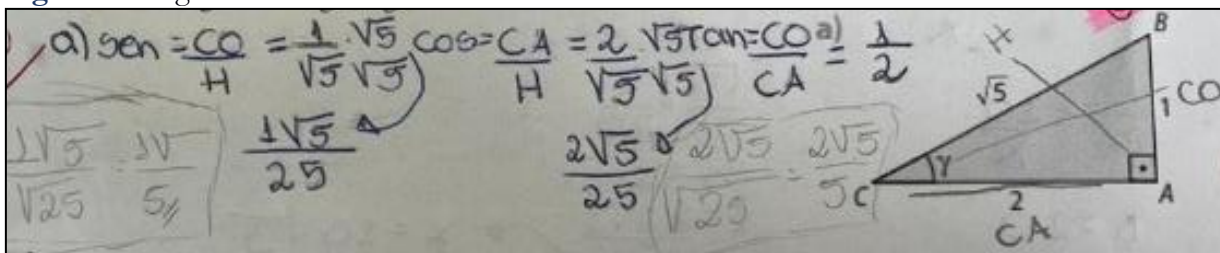 a) sen = CO/H = 1/√5 · √5/√5 cos = CA/H = 2/√5 √5/√5 Tan = CO/CA a) = 1/2
1√5/25
2√5/25
1√5/√25 = 1√/5
2√5/√25 = 2√5/5
B
H
√5
1
CO
γ
C
2
A
CA